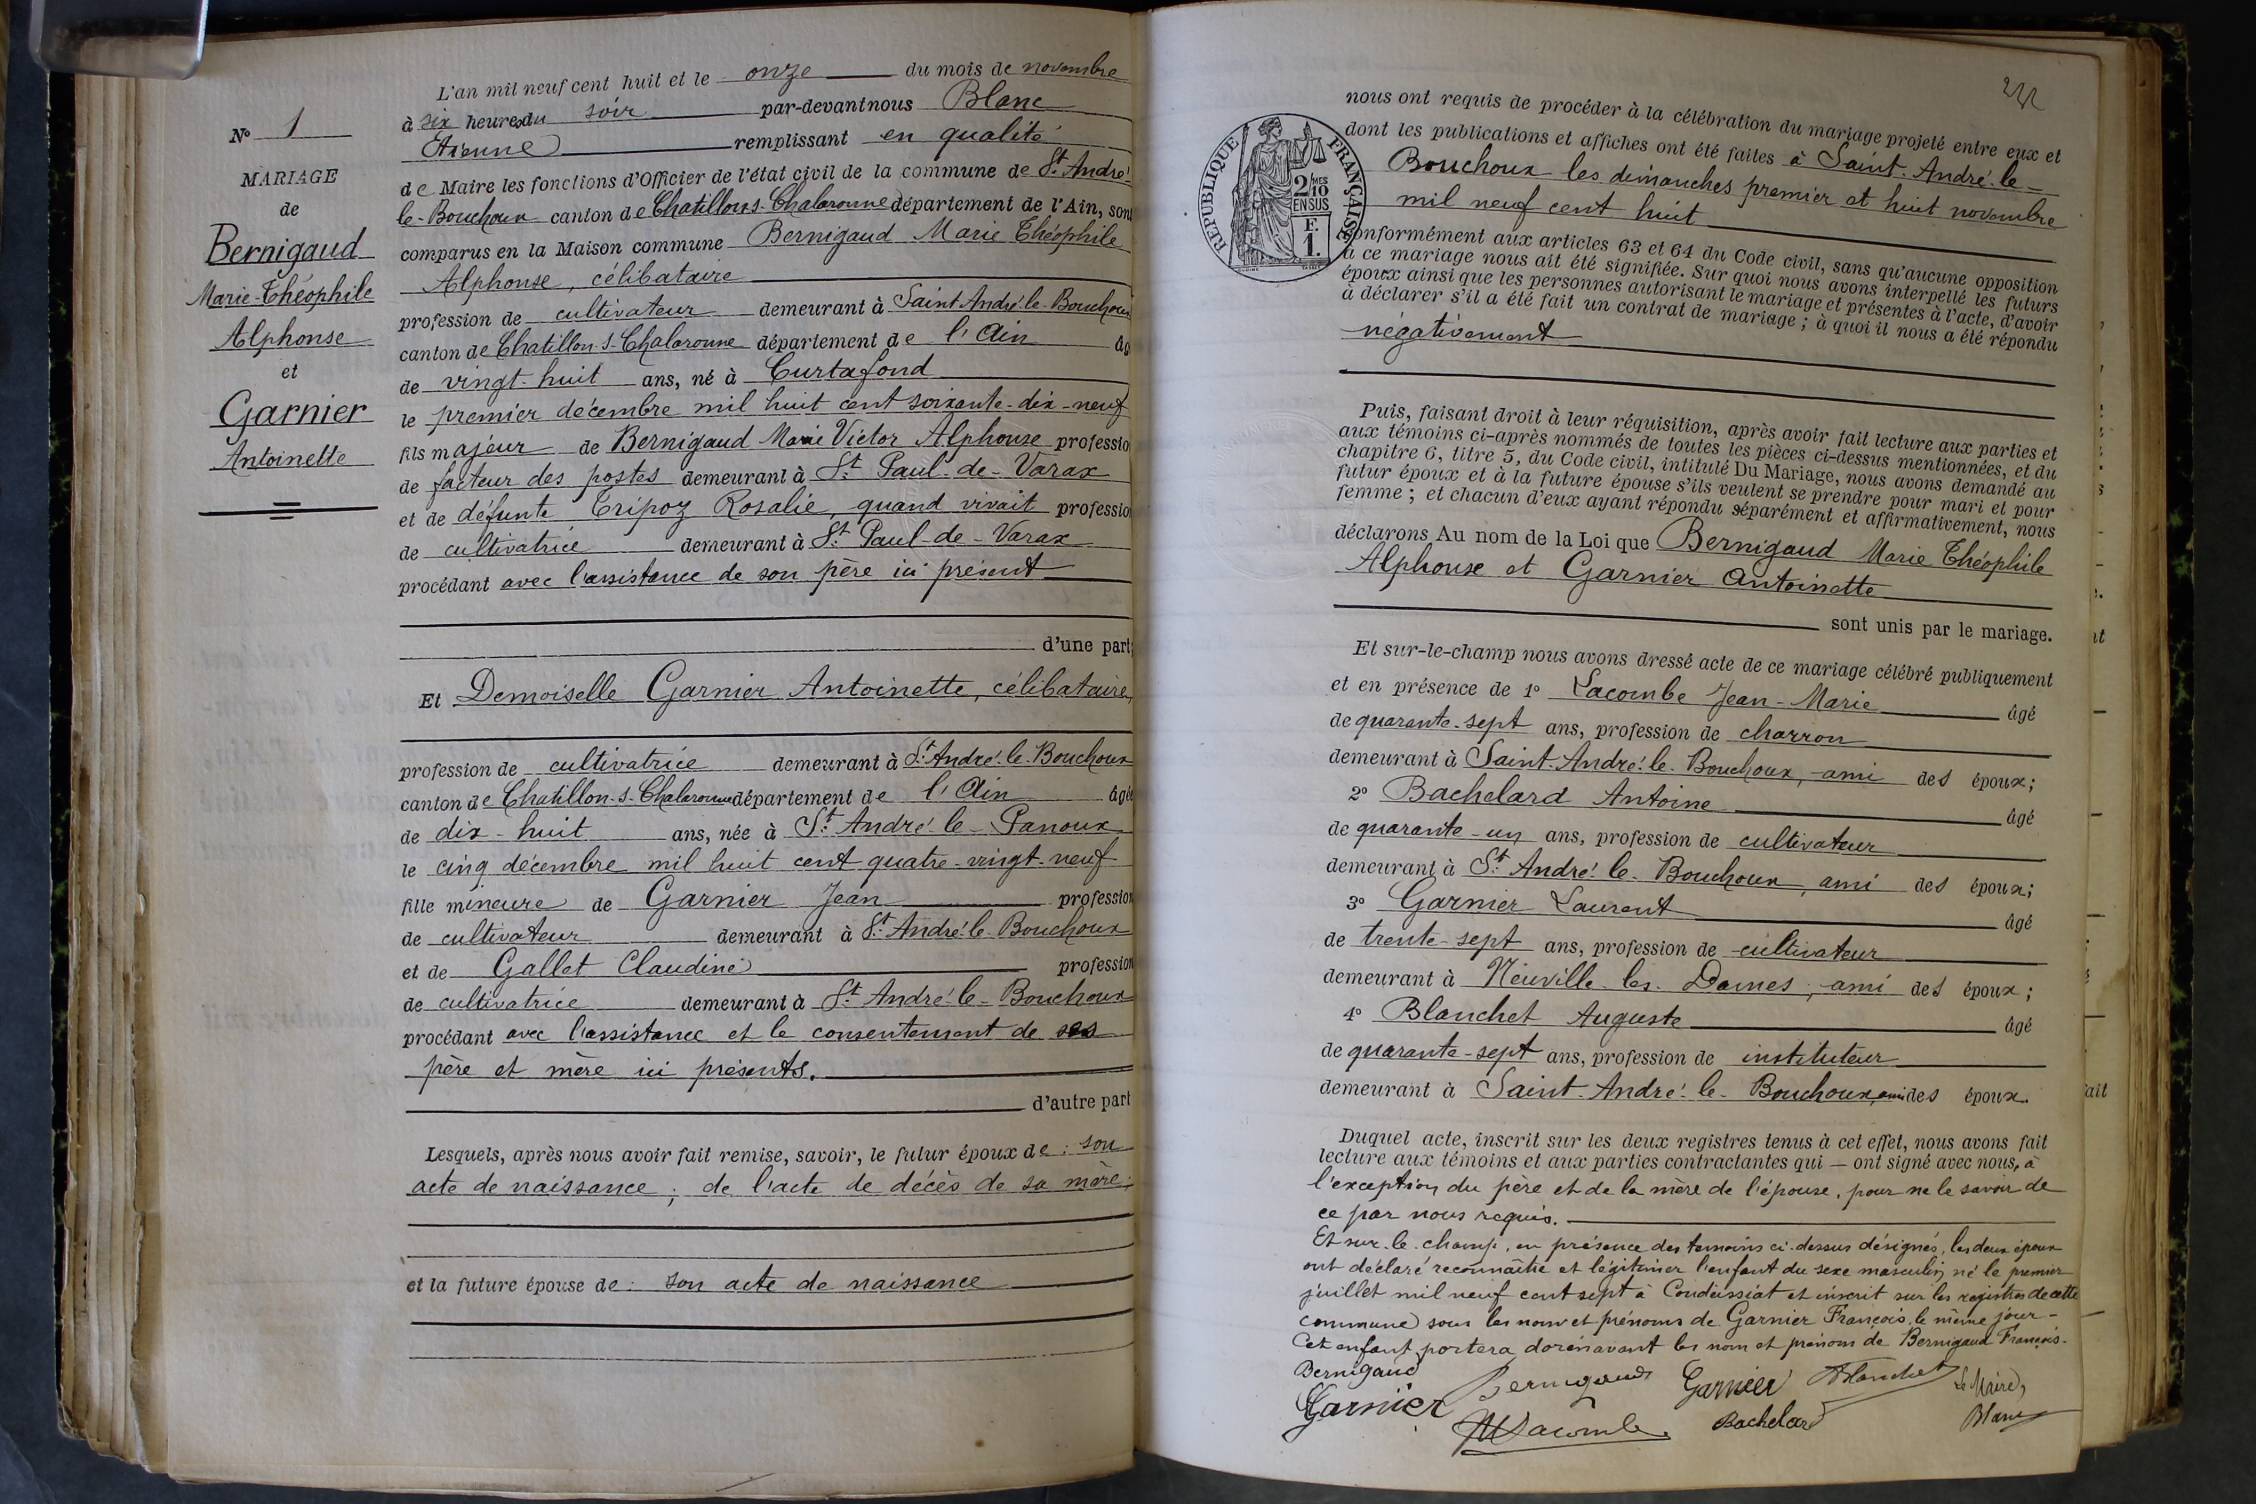 N° 1
MARIAGE
de
Bernigaud
Marie-Théophile
Alphonse
et
Garnier
Antoinette
L'an mil neuf cent huit et le onze du mois de novembre
à six heures du soir par-devant nous Blanc
Étienne remplissant en qualité
de Maire les fonctions d'Officier de l'état civil de la commune de St André-
le-Bouchoux canton de Chatillon-s-Chalaronne département de l'Ain, sont
comparus en la Maison commune Bernigaud Marie Théophile
Alphonse, célibataire
profession de cultivateur demeurant à Saint André-le-Bouchoux
canton de Chatillon-s-Chalaronne département de l'Ain âgé
de vingt-huit ans, né à Curtafond
le premier décembre mil huit cent soixante-dix-neuf
fils majeur de Bernigaud Marie Victor Alphonse profession
de facteur des postes demeurant à St Paul-de-Varax
et de défunte Tripoz Rosalie, quand vivait profession
de cultivatrice demeurant à St Paul-de-Varax
procédant avec l'assistance de son père ici présent
d'une part;
Et Demoiselle Garnier Antoinette, célibataire,
profession de cultivatrice demeurant à St André-le-Bouchoux
canton de Chatillon-s-Chalaronne département de l'Ain âgée
de dix-huit ans, née à St André-le-Panoux
le cinq décembre mil huit cent quatre-vingt-neuf
fille mineure de Garnier Jean profession
de cultivateur demeurant à St André-le-Bouchoux
et de Gallet Claudine profession
de cultivatrice demeurant à St André-le-Bouchoux
procédant avec l'assistance et le consentement de ses
père et mère ici présents.
d'autre part
Lesquels, après nous avoir fait remise, savoir, le futur époux de : son
acte de naissance ; de l'acte de décès de sa mère;
et la future épouse de : son acte de naissance
RÉPUBLIQUE FRANÇAISE
2/10
MES
EN SUS
F.
1.
nous ont requis de procéder à la célébration du mariage projeté entre eux et
dont les publications et affiches ont été faites à Saint-André-le-
Bouchoux les dimanches premier et huit novembre
mil neuf cent huit
conformément aux articles 63 et 64 du Code civil, sans qu'aucune opposition
à ce mariage nous ait été signifiée. Sur quoi nous avons interpellé les futurs
époux ainsi que les personnes autorisant le mariage et présentes à l'acte, d'avoir
à déclarer s'il a été fait un contrat de mariage ; à quoi il nous a été répondu
négativement
Puis, faisant droit à leur réquisition, après avoir fait lecture aux parties et
aux témoins ci-après nommés de toutes les pièces ci-dessus mentionnées, et du
chapitre 6, titre 5, du Code civil, intitulé Du Mariage, nous avons demandé au
futur époux et à la future épouse s'ils veulent se prendre pour mari et pour
femme ; et chacun d'eux ayant répondu séparément et affirmativement, nous
déclarons Au nom de la Loi que Bernigaud Marie Théophile
Alphonse et Garnier Antoinette
sont unis par le mariage.
Et sur-le-champ nous avons dressé acte de ce mariage célébré publiquement
et en présence de 1° Lacombe Jean-Marie âgé
de quarante-sept ans, profession de charron
demeurant à Saint-André-le-Bouchoux, ami des époux;
2° Bachelard Antoine âgé
de quarante-un ans, profession de cultivateur
demeurant à St André-le-Bouchoux, ami des époux;
3° Garnier Laurent âgé
de trente-sept ans, profession de cultivateur
demeurant à Neuville-les-Dames, ami des époux;
4° Blanchet Auguste âgé
de quarante-sept ans, profession de instituteur
demeurant à Saint-André-le-Bouchoux, ami des époux.
Duquel acte, inscrit sur les deux registres tenus à cet effet, nous avons fait
lecture aux témoins et aux parties contractantes qui — ont signé avec nous, à
l'exception du père et de la mère de l'épouse, pour ne le savoir de
ce par nous requis.
Et sur-le-champ, en présence des témoins ci-dessus désignés, les deux époux
ont déclaré reconnaître et légitimer l'enfant du sexe masculin né le premier
juillet mil neuf cent sept à Condeissiat et inscrit sur les registres de cette
commune sous les nom et prénoms de Garnier François, le même jour -
Cet enfant portera dorénavant les nom et prénom de Bernigaud François.
Bernigaud Bernigaud Garnier ABlanchet Le Maire,
Garnier JMLacombe Bachelard Blanc